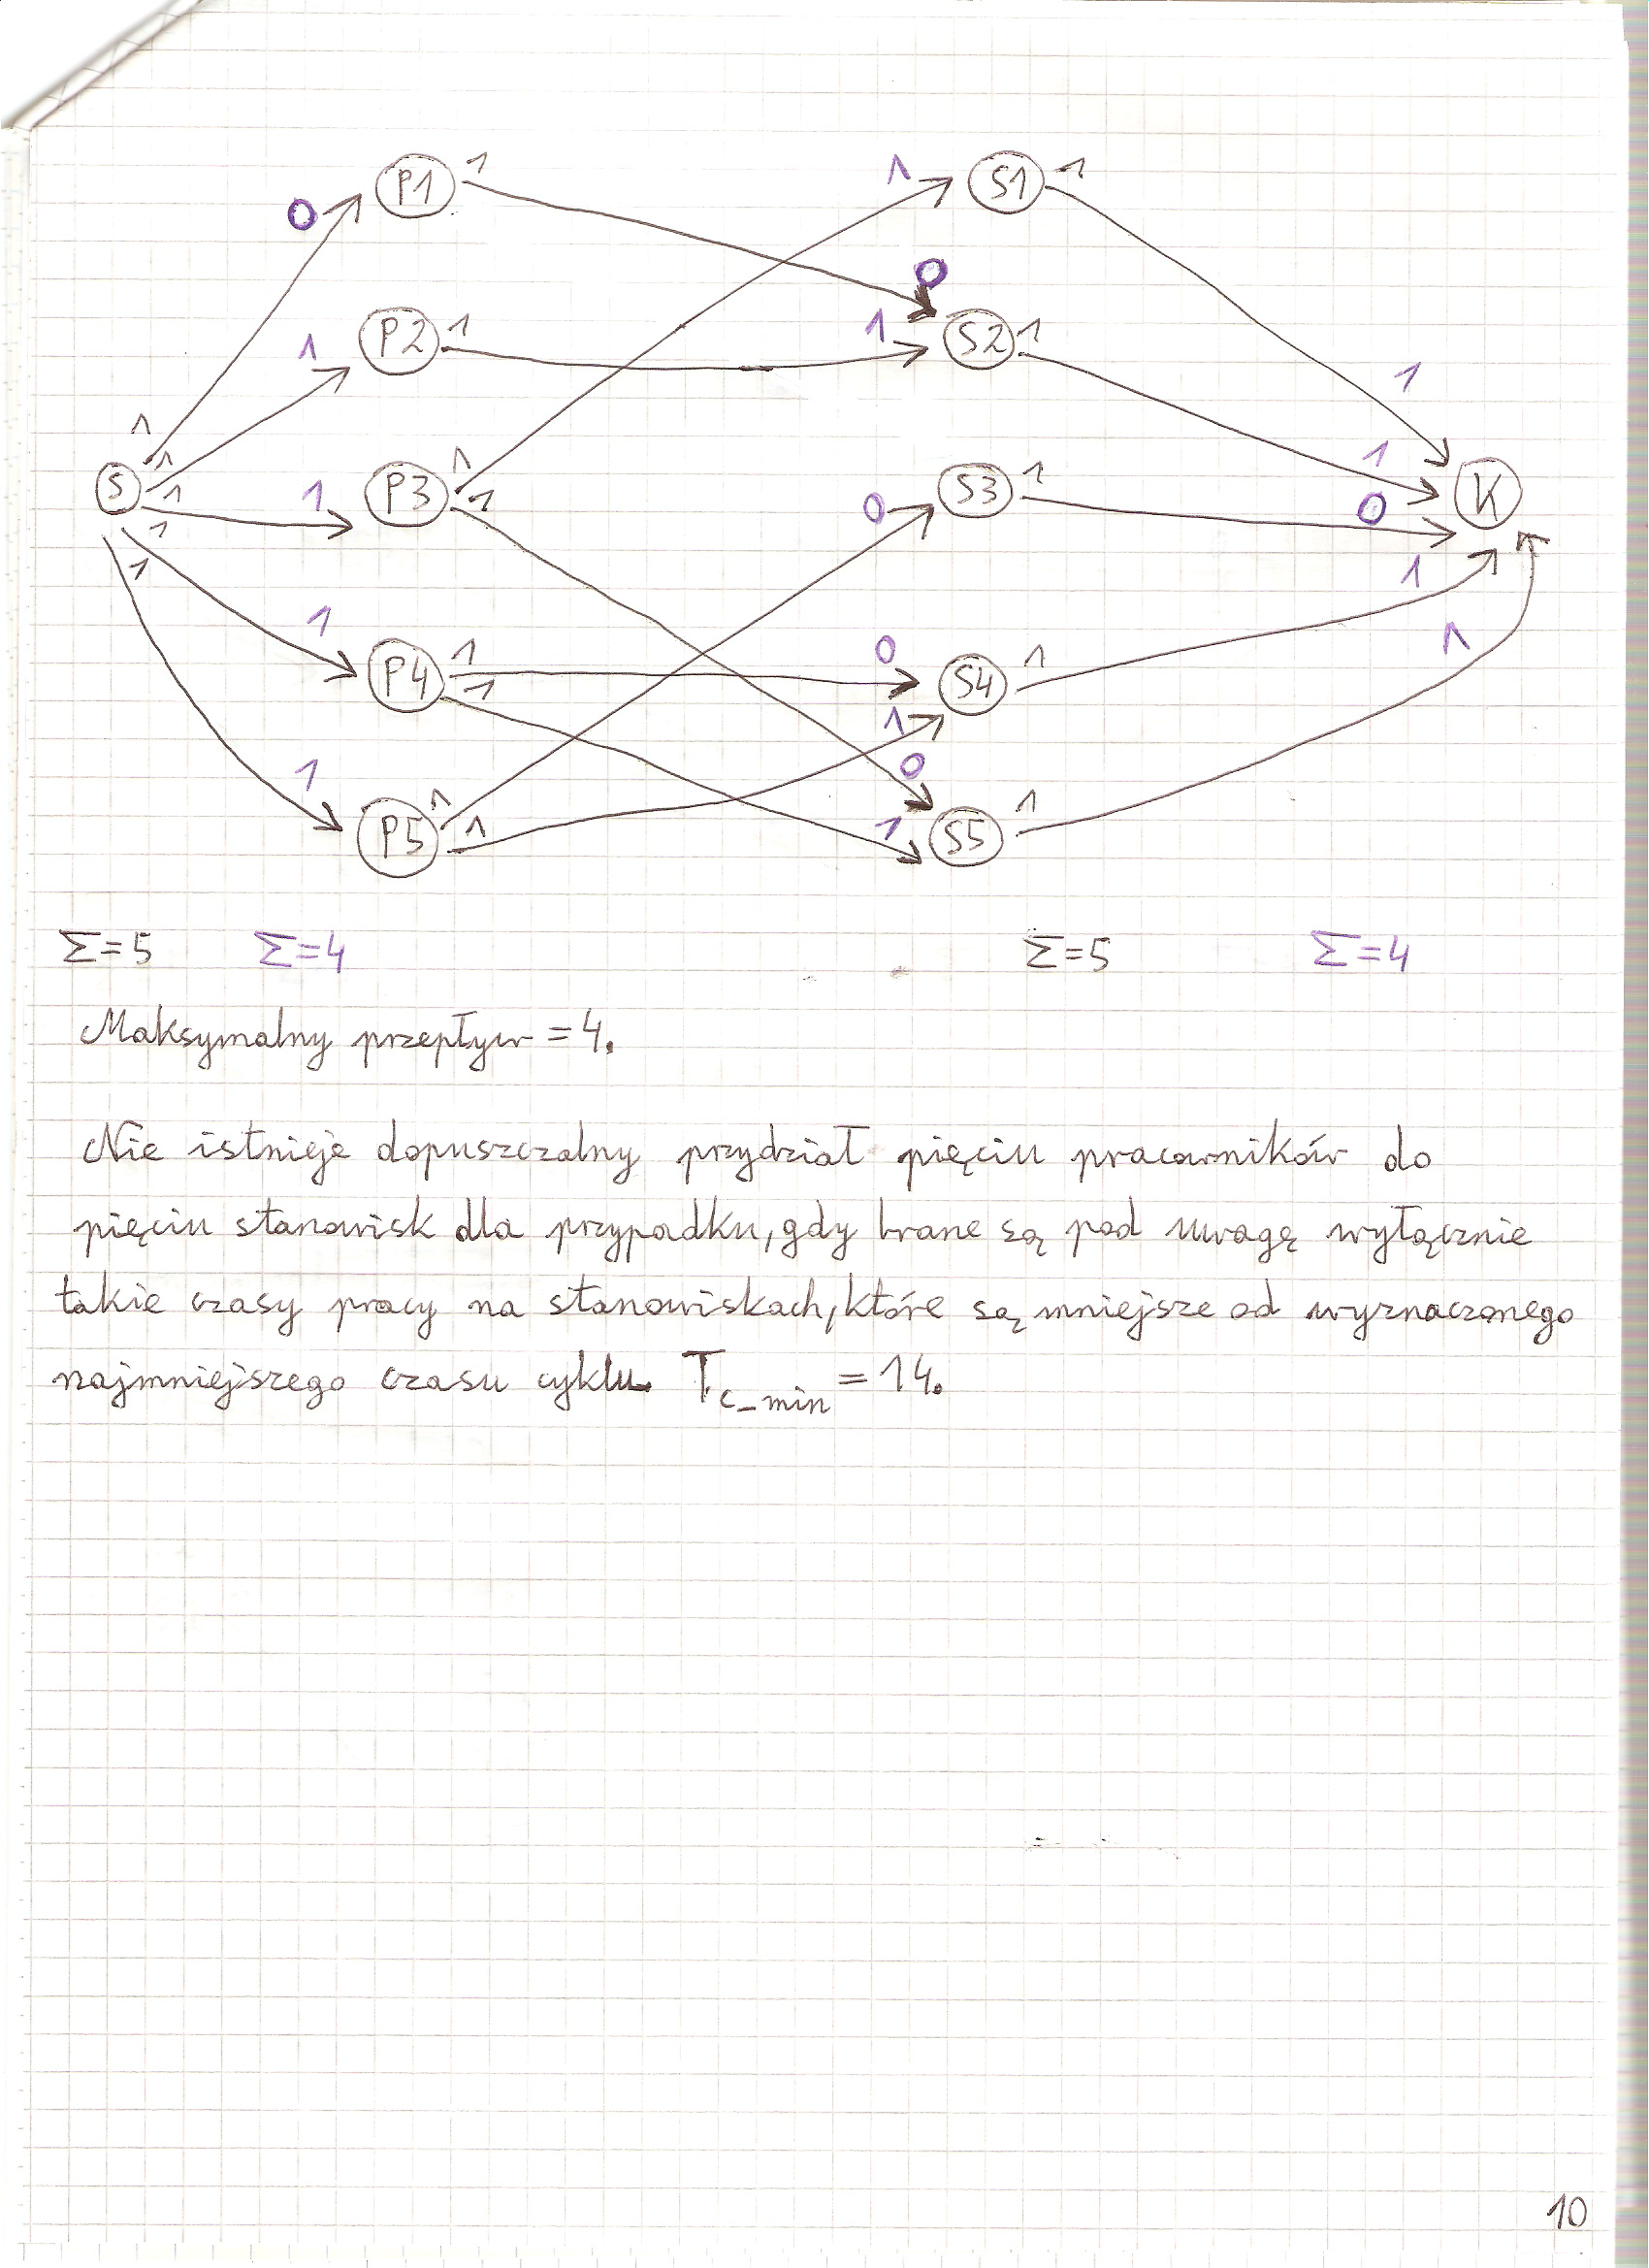 P1 1 1 S1 1
0
0
P2 1 1 S2 1
1
1
1 1
S 1 1 1 P3 1 1 0 S3 1 0 K
1 1
1 P4 1 1 0 S4 1 1
1 0
1 P5 1 1 1 S5 1 1
Σ=5 Σ=4 Σ=5 Σ=4
Maksymalny przepływ = 4.
Nie istnieje dopuszczalny przydział pięciu pracowników do
pięciu stanowisk dla przypadku, gdy brane są pod uwagę wyłącznie
takie czasy pracy na stanowiskach, które są mniejsze od wyznaczonego
najmniejszego czasu cyklu. T_c_min = 14.
10